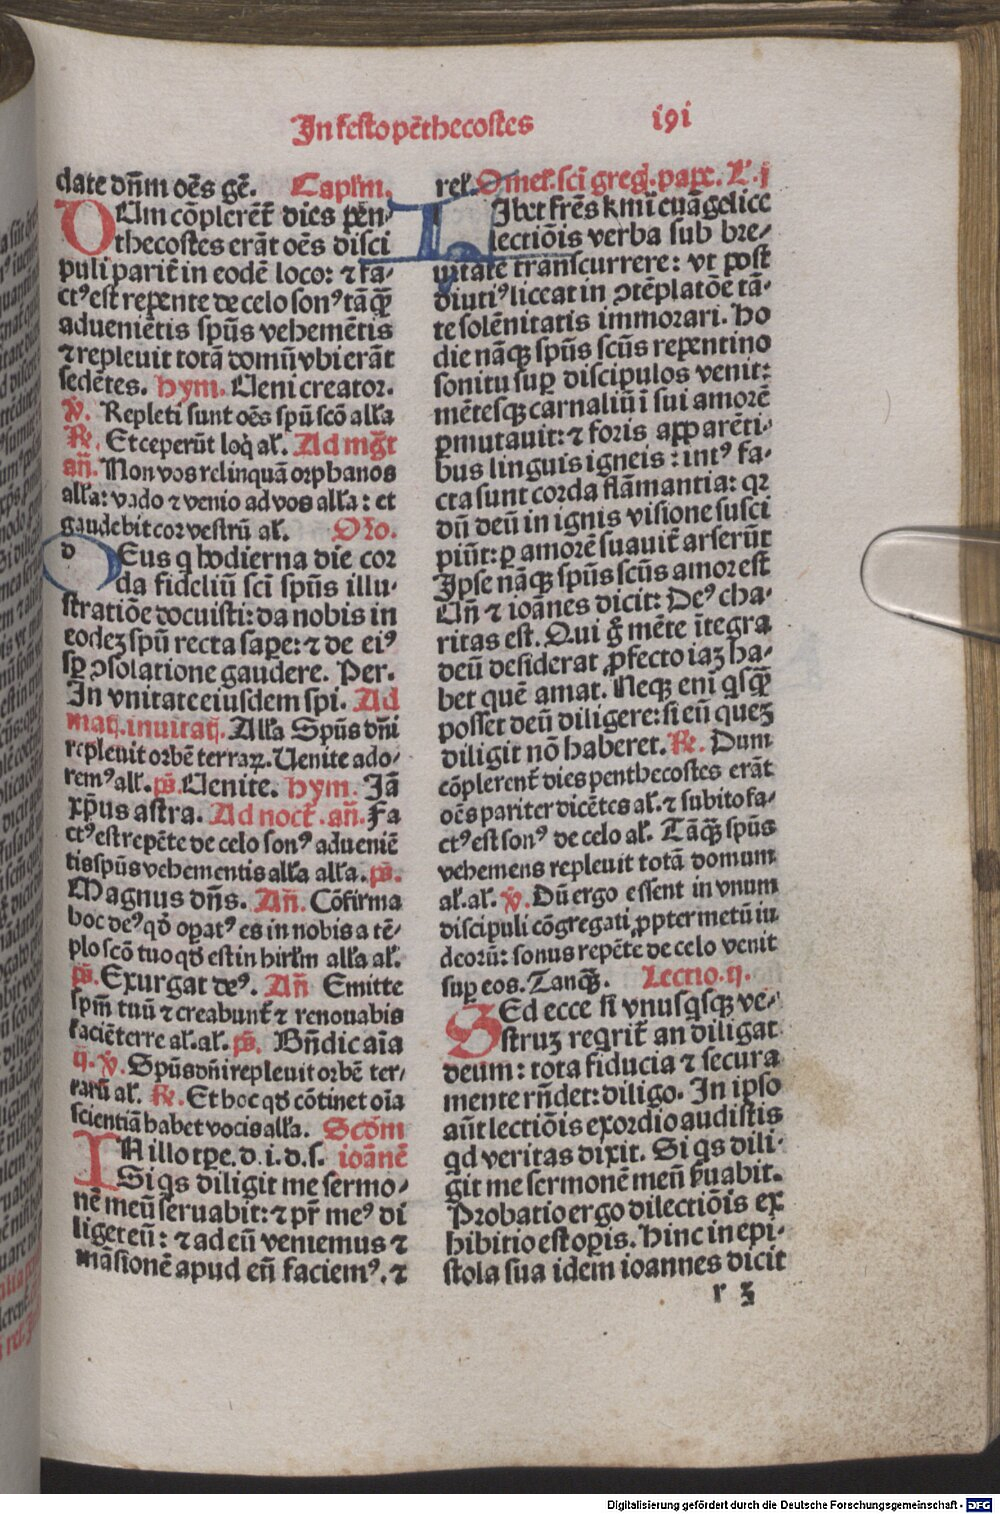 In festo pēthecostes
i9i
date dn̄m oēs gē. Capl'm.
DUm cōplerēt dies pen-
thecostes erāt oēs disci
puli parit̄ in eodē loco: ⁊ fa-
ctꝰ est repente de celo sonꝰ tāꝗ̄
adueniētis sp̄us vehemētis
⁊ repleuit totā domū vbi erāt
sedētes. hym. Ueni creator.
v̄. Repleti sunt oēs spū scō all'a
R̄. Et ceperūt loq̇ al'. Ad mgt̄
an̄. Non vos relinquā orphanos
all'a: vado ⁊ venio ad vos all'a: et
gaudebit cor vestrū al'. Oro.
DEus q hodierna die cor
da fideliū sci sp̄us illu-
stratiōe docuisti: da nobis in
eodeꝫ spū recta sape: ⁊ de eiꝰ
sꝑ ꝯsolatione gaudere. Per.
In vnitate eiusdem spi. Ad
mat. inuitat. All'a Spūs dn̄i
repleuit orbē terraꝝ. Uenite ado-
remꝰ all'. ps̄. Uenite. hym. Jā
xp̄us astra. Ad noct̄. an̄. Fa
ctꝰ est repēte de celo sonꝰ adueniē
tis spūs vehementis all'a all'a. ps̄.
Magnus dn̄s. An̄. Cōfirma
hoc deꝰ qď operatꝰ es in nobis a tē-
plo scō tuo qď est in hirl'm all'a al'.
ps̄. Exurgat deꝰ. An̄ Emitte
spm̄ tuū ⁊ creabunt̄ ⁊ renouabis
faciē terre al. al. ps̄. Bn̄dic aīa
ij. v̄. Spūs dn̄i repleuit orbē ter-
rarū al'. R̄. Et hoc qď cōtinet oīa
scientiā habet vocis all'a. Scďm
IN illo tꝑe. d. i. d. s. ioānē
Si q̇s diligit me sermo-
nē meū seruabit: ⁊ pr̄ meꝰ di
liget eū: ⁊ ad eū veniemus ⁊
māsionē apud eū faciemꝰ. ⁊
rel'. Omel'. sci greg. pape. L'. j
LIbet fr̄es kmi euāgelice
lectiōis verba sub bre-
uitate transcurrere: vt post
diutiꝰ liceat in ꝯtēplatōe tā-
te solēnitatis immorari. Ho
die nāꝗ spūs scūs repentino
sonitu suꝑ discipulos venit:
mētesꝗ carnaliū ī sui amorē
ꝑmutauit: ⁊ foris apparēti-
bus linguis igneis: intꝰ fa-
cta sunt corda flāmantia: qꝛ
dū deū in ignis visione susci
piūt: ꝑ amorē suauit̄ arserūt
Ipse nāꝗ spūs scūs amor est
Un̄ ⁊ ioānes dicit: Deꝰ cha-
ritas est. Qui g̊ mēte ītegra
deū desiderat ꝓfecto iaꝫ ha-
bet quē amat. Neꝗ eni q̇sꝗ̄
posset deū diligere: si eū queꝫ
diligit nō haberet. R̄. Dum
cōplerent̄ dies penthecostes erāt
oēs pariter dicētes al'. ⁊ subito fa-
ctꝰ est sonꝰ de celo al'. Tāꝗ̄ spūs
vehemens repleuit totā domum
al. al'. v̄. Dū ergo essent in vnum
discipuli cōgregati ꝓpter metū iu
deorū: sonus repēte de celo venit
suꝑ eos. Tanꝗ̄. Lectio. ij.
SEd ecce si vnusq̇sꝗ ve-
struꝫ reqrit̄ an diligat
deum: tota fiducia ⁊ secura
mente rn̄det: diligo. In ipso
aūt lectiōis exordio audistis
qď veritas dixit. Si q̇s dili-
git me sermonē meū ẜuabit.
Probatio ergo dilectiōis ex
hibitio est oꝑis. Hinc in epi-
stola sua idem ioannes dicit
r 3
Digitalisierung gefördert durch die Deutsche Forschungsgemeinschaft - DFG